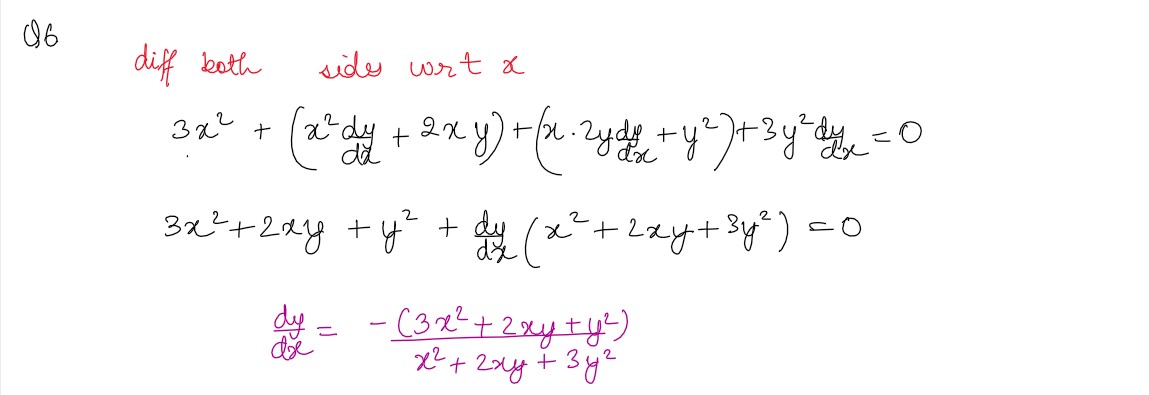 Q6
diff both sides wrt x
3x² + (x² dy/dx + 2xy) + (x·2y dy/dx + y²) + 3y² dy/dx = 0
3x² + 2xy + y² + dy/dx (x² + 2xy + 3y²) = 0
dy/dx = -(3x² + 2xy + y²)/(x² + 2xy + 3y²)